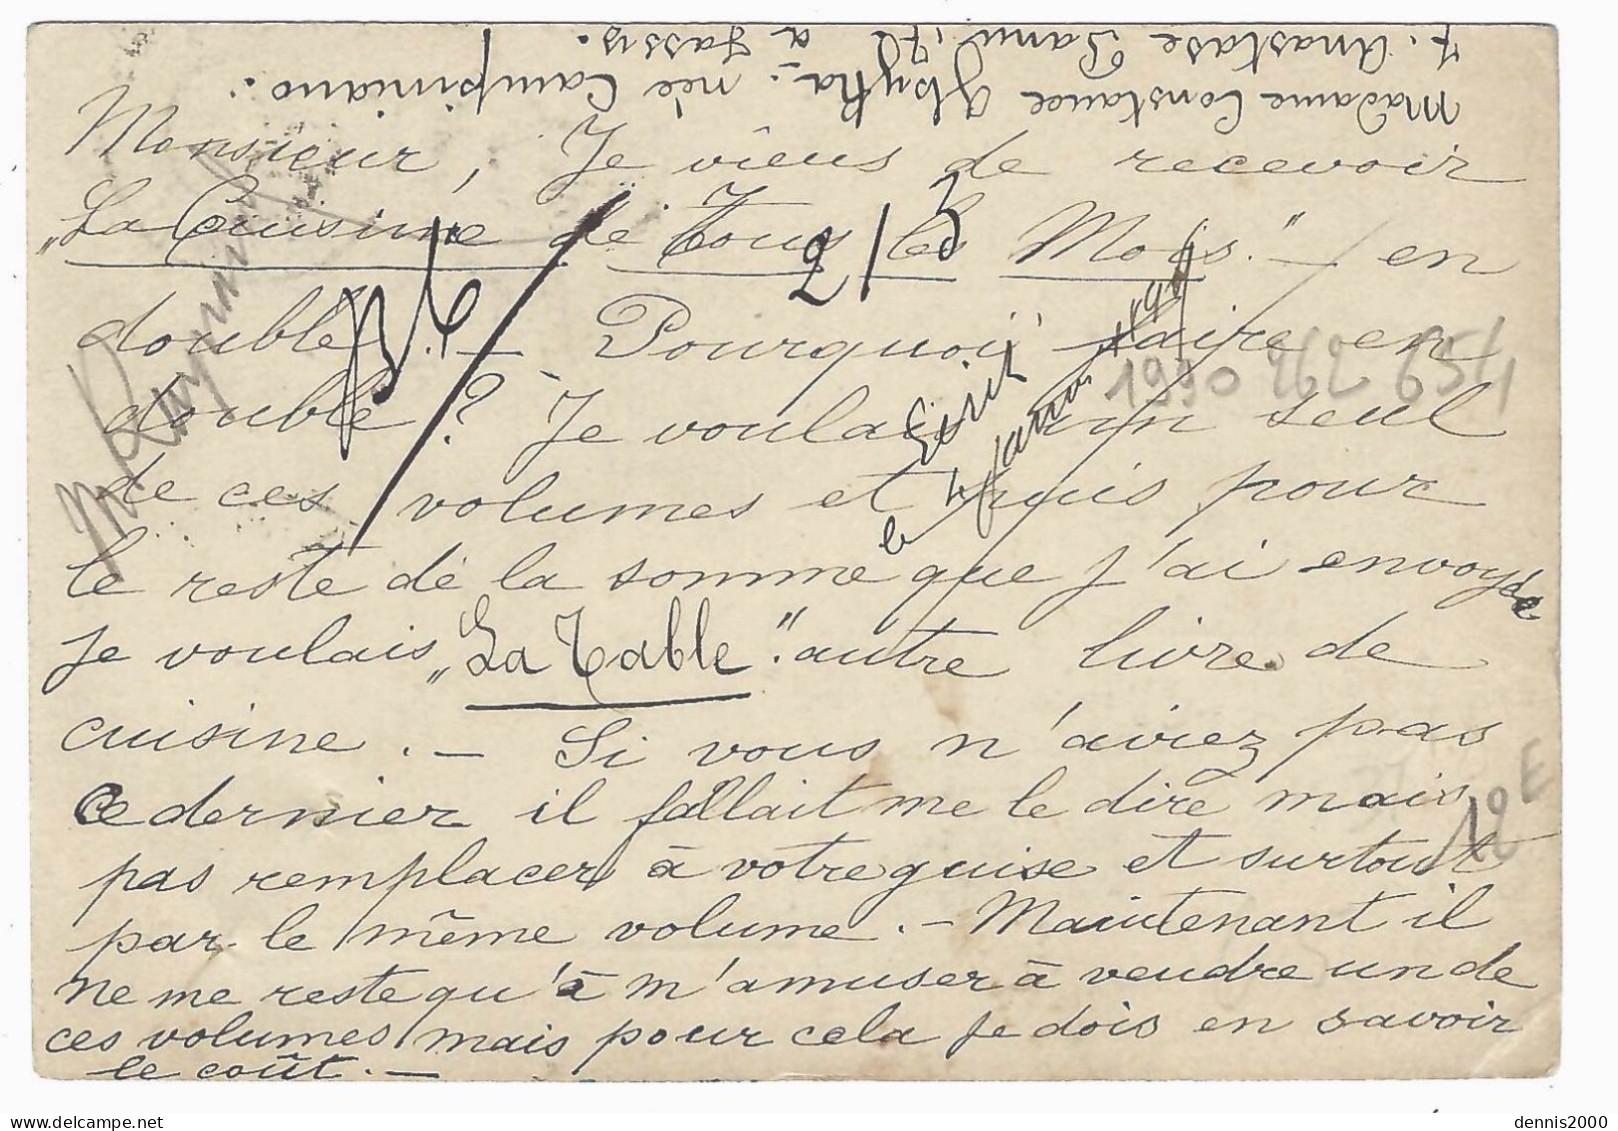 Madame Constance née
Anastase à Jassy.
Monsieur, Je viens de recevoir
„La Cuisine de Tous les Mois." — en
double. — Pourquoi faire en
double? Je voulais un seul
de ces volumes et puis pour
le reste de la somme que j'ai envoyé
je voulais „La Table". autre livre de
cuisine. — Si vous n'aviez pas
ce dernier il fallait me le dire mais
pas remplacer à votre guise et surtout
par le même volume. — Maintenant il
ne me reste qu'à m'amuser à vendre un de
ces volumes mais pour cela je dois en savoir
le coût. —
Ecrit
le 4
1990 262 654
12 E
dennis2000